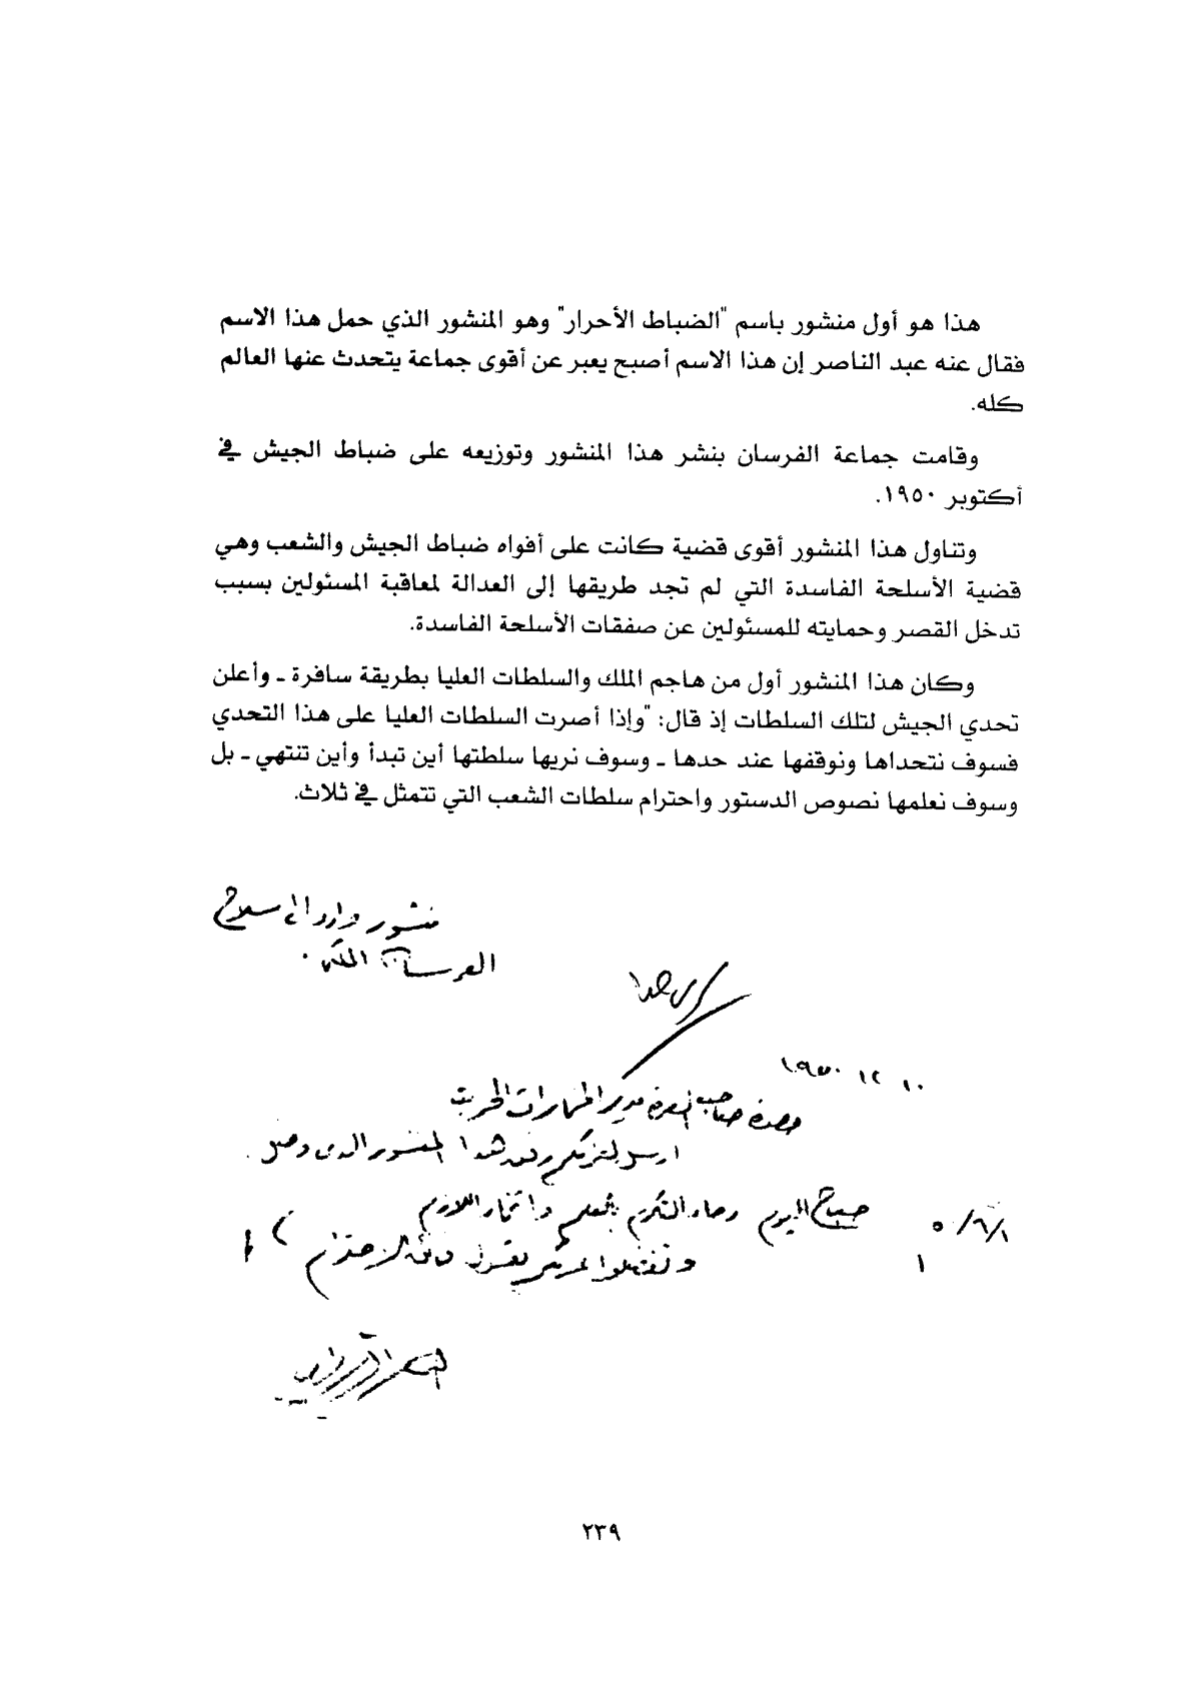 هذا هو أول منشور باسم "الضباط الأحرار" وهو المنشور الذي حمل هذا الاسم
فقال عنه عبد الناصر إن هذا الاسم أصبح يعبر عن أقوى جماعة يتحدث عنها العالم
كله.
وقامت جماعة الفرسان بنشر هذا المنشور وتوزيعه على ضباط الجيش في
أكتوبر ١٩٥٠.
وتناول هذا المنشور أقوى قضية كانت على أفواه ضباط الجيش والشعب وهي
قضية الأسلحة الفاسدة التي لم تجد طريقها إلى العدالة لمعاقبة المسئولين بسبب
تدخل القصر وحمايته للمسئولين عن صفقات الأسلحة الفاسدة.
وكان هذا المنشور أول من هاجم الملك والسلطات العليا بطريقة سافرة ـ وأعلن
تحدي الجيش لتلك السلطات إذ قال: "وإذا أصرت السلطات العليا على هذا التحدي
فسوف نتحداها ونوقفها عند حدها ـ وسوف نريها سلطتها أين تبدأ وأين تنتهي ـ بل
وسوف نعلمها نصوص الدستور واحترام سلطات الشعب التي تتمثل في ثلاث.
منشور وارد الى سلاح
الفرسان الملكى.
سرى جدا
١٠ ١٢ ١٩٥٠
حضرة صاحب العزة مدير المخابرات الحربية
ارسل لعزتكم رفق هذا المنشور الذى وصل
صباح اليوم رجاء التكرم بالعلم واتخاذ اللازم
وتفضلوا عزتكم بقبول فائق الاحترام
٢٣٩